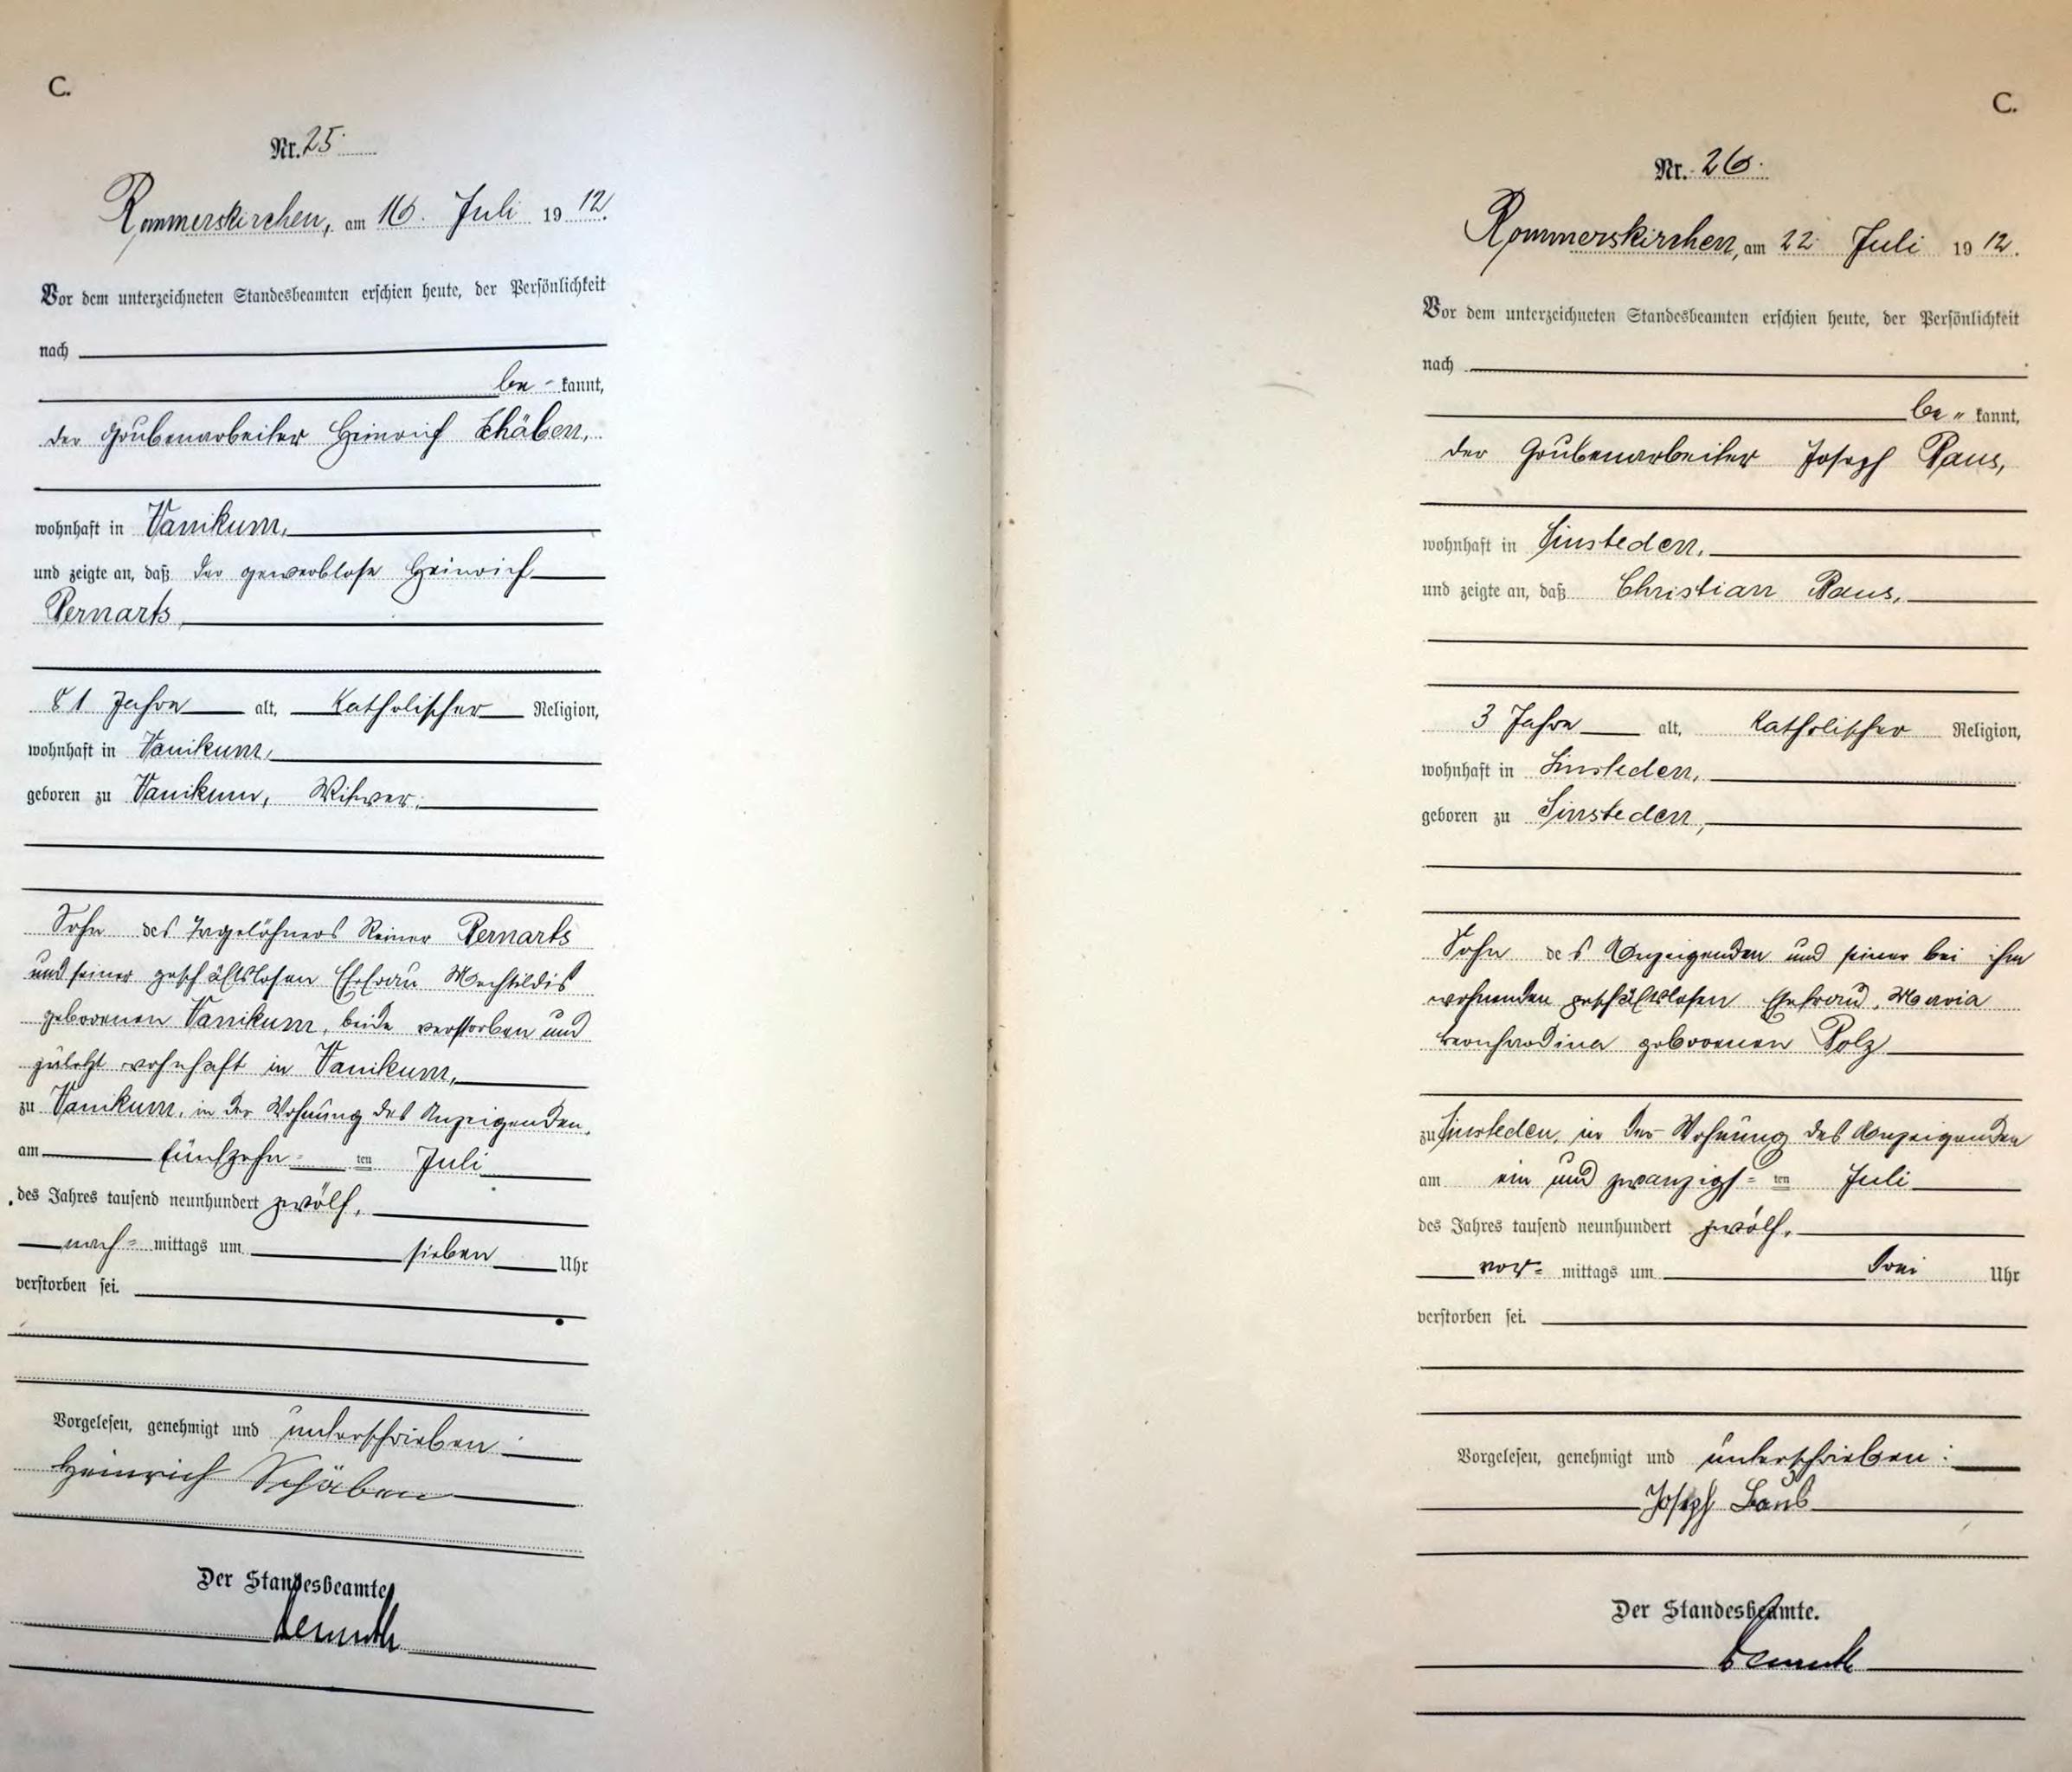 C.
Nr. 25.
Rommerskirchen, am 16. Juli 1912.
Vor dem unterzeichneten Standesbeamten erschien heute, der Persönlichkeit
nach
be - kannt,
der Grubenarbeiter Heinrich Schäben,
wohnhaft in Vanikum,
und zeigte an, daß der gewerblose Heinrich
Bernarts
81 Jahre alt, katholischer Religion,
wohnhaft in Vanikum,
geboren zu Vanikum, Witwer,
Sohn des Tagelöhners Reiner Bernarts
und seiner geschäftslosen Ehefrau Mechtildis
geborenen Vanikum, beide verstorben und
zuletzt wohnhaft in Vanikum,
zu Vanikum, in der Wohnung des Anzeigenden,
am fünfzehn= ten Juli
des Jahres tausend neunhundert zwölf,
nach= mittags um sieben Uhr
verstorben sei.
Vorgelesen, genehmigt und unterschrieben:
Heinrich Schäben
Der Standesbeamte
C.
Nr. 26.
Rommerskirchen, am 22. Juli 1912.
Vor dem unterzeichneten Standesbeamten erschien heute, der Persönlichkeit
nach
be " kannt,
der Grubenarbeiter Joseph Baus,
wohnhaft in Sinsteden,
und zeigte an, daß Christian Baus,
3 Jahre alt, katholischer Religion,
wohnhaft in Sinsteden,
geboren zu Sinsteden,
Sohn des Anzeigenden und seiner bei ihm
wohnenden geschäftslosen Ehefrau, Maria
Bernhardina geborenen Bolz
zu Sinsteden, in der Wohnung des Anzeigenden
am ein und zwanzigs= ten Juli
des Jahres tausend neunhundert zwölf,
vor= mittags um drei Uhr
verstorben sei.
Vorgelesen, genehmigt und unterschrieben:
Joseph Baus
Der Standesbeamte.